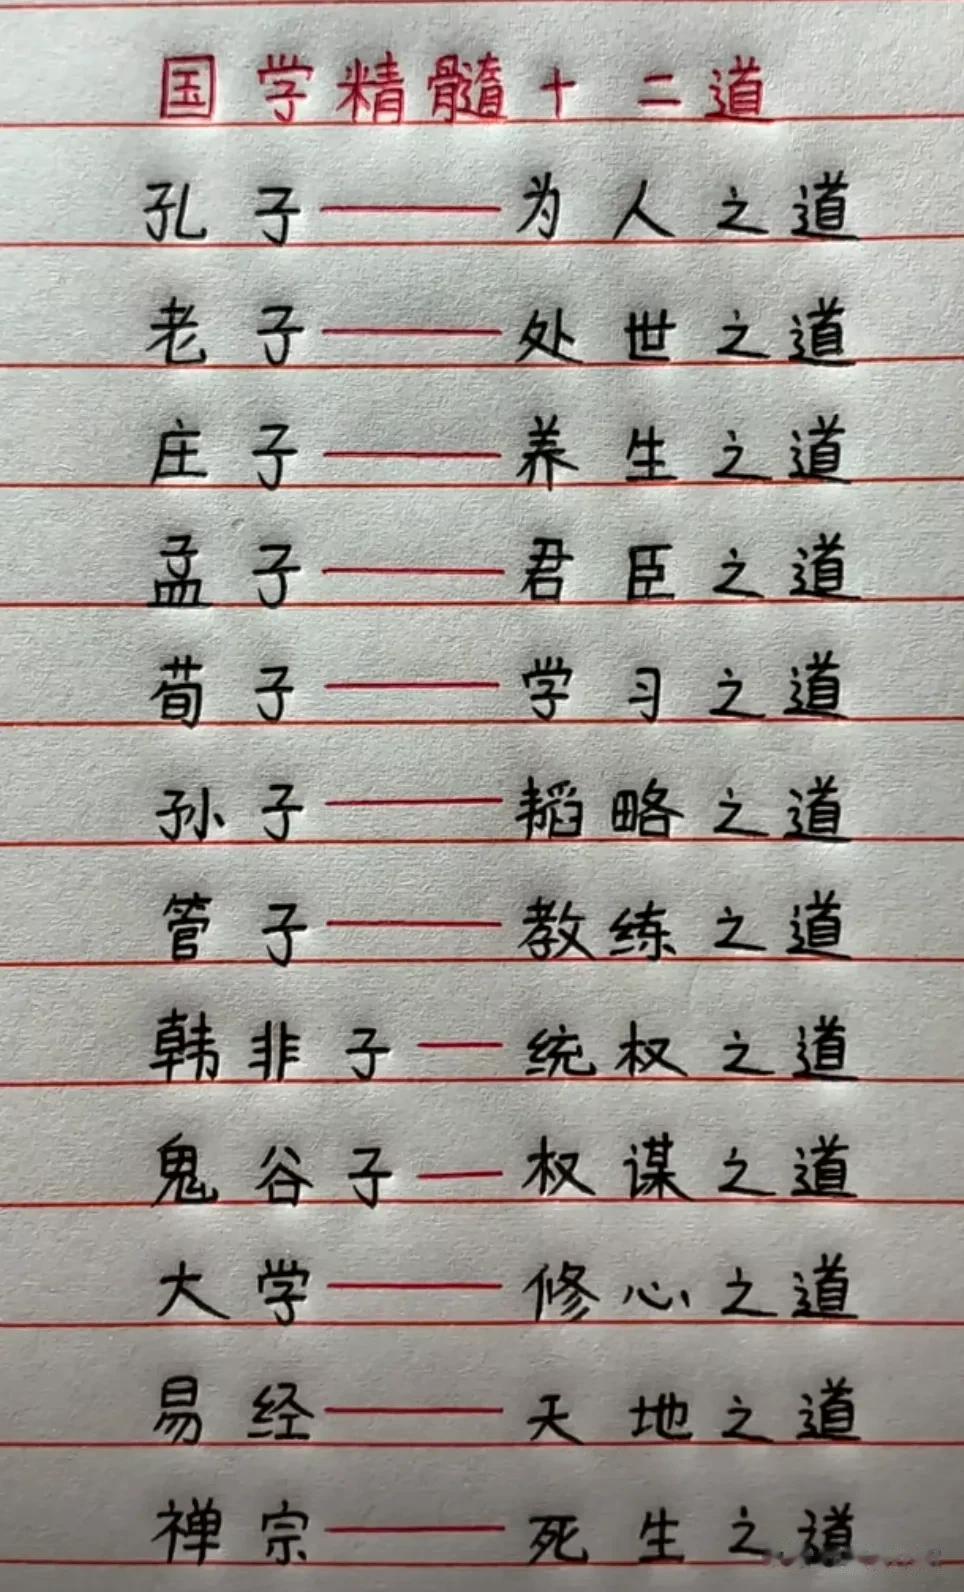 国学精髓十二道
孔子——为人之道
老子——处世之道
庄子——养生之道
孟子——君臣之道
荀子——学习之道
孙子——韬略之道
管子——教练之道
韩非子—统权之道
鬼谷子—权谋之道
大学——修心之道
易经——天地之道
禅宗——死生之道